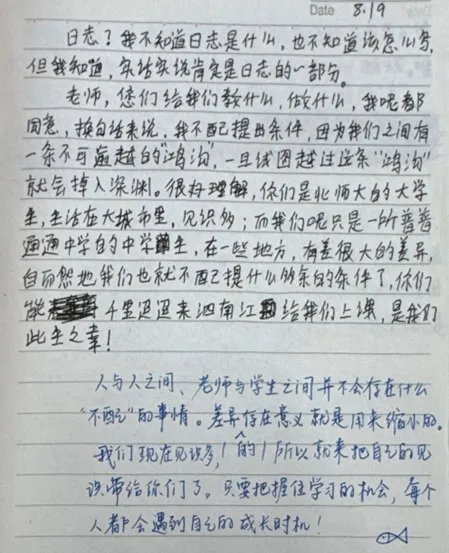 Date 8.19
日志？我不知道日志是什么，也不知道该怎么写，
但我知道，实话实说肯定是日志的一部分。
老师，您们给我们教什么，做什么，我呢都
同意，换句话来说，我不配提出条件，因为我们之间有
一条不可逾越的"鸿沟"，一旦试图越过这条"鸿沟"
就会掉入深渊。很好理解，你们是北师大的大学
生，生活在大城市里，见识多；而我们呢只是一所普普
通通中学的中学生，在一些地方，有差很大的差异，
自而然地我们也就不配提什么多余的条件了，你们
能 千里迢迢来泗南江给我们上课，是我们
此生之幸！
人与人之间、老师与学生之间并不会存在什么
"不配"的事情。差异存在意义就是用来缩小的。
我们现在见识多，(的)所以就来把自己的见
识带给你们了。只要把握住学习的机会，每个
人都会遇到自己的成长时机！